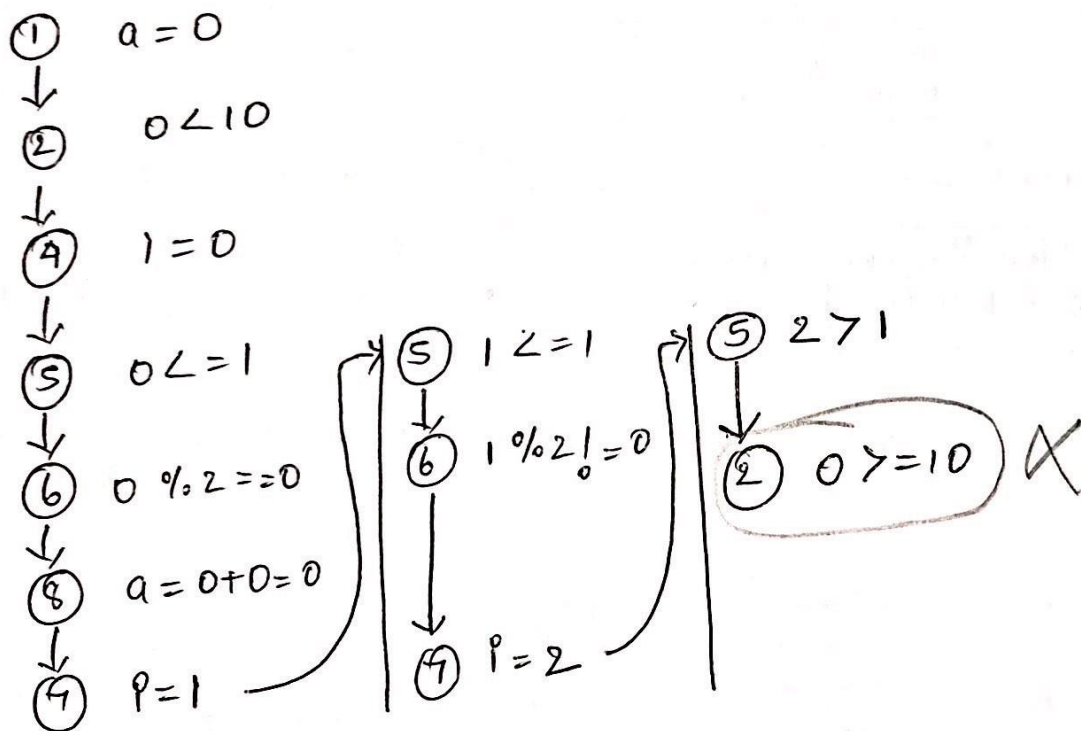 ① a = 0
② 0 < 10
④ i = 0
⑤ 0 <= 1
⑥ 0 % 2 == 0
⑧ a = 0+0 = 0
⑦ i = 1
⑤ 1 <= 1
⑥ 1 % 2 != 0
⑦ i = 2
⑤ 2 > 1
② 0 >= 10